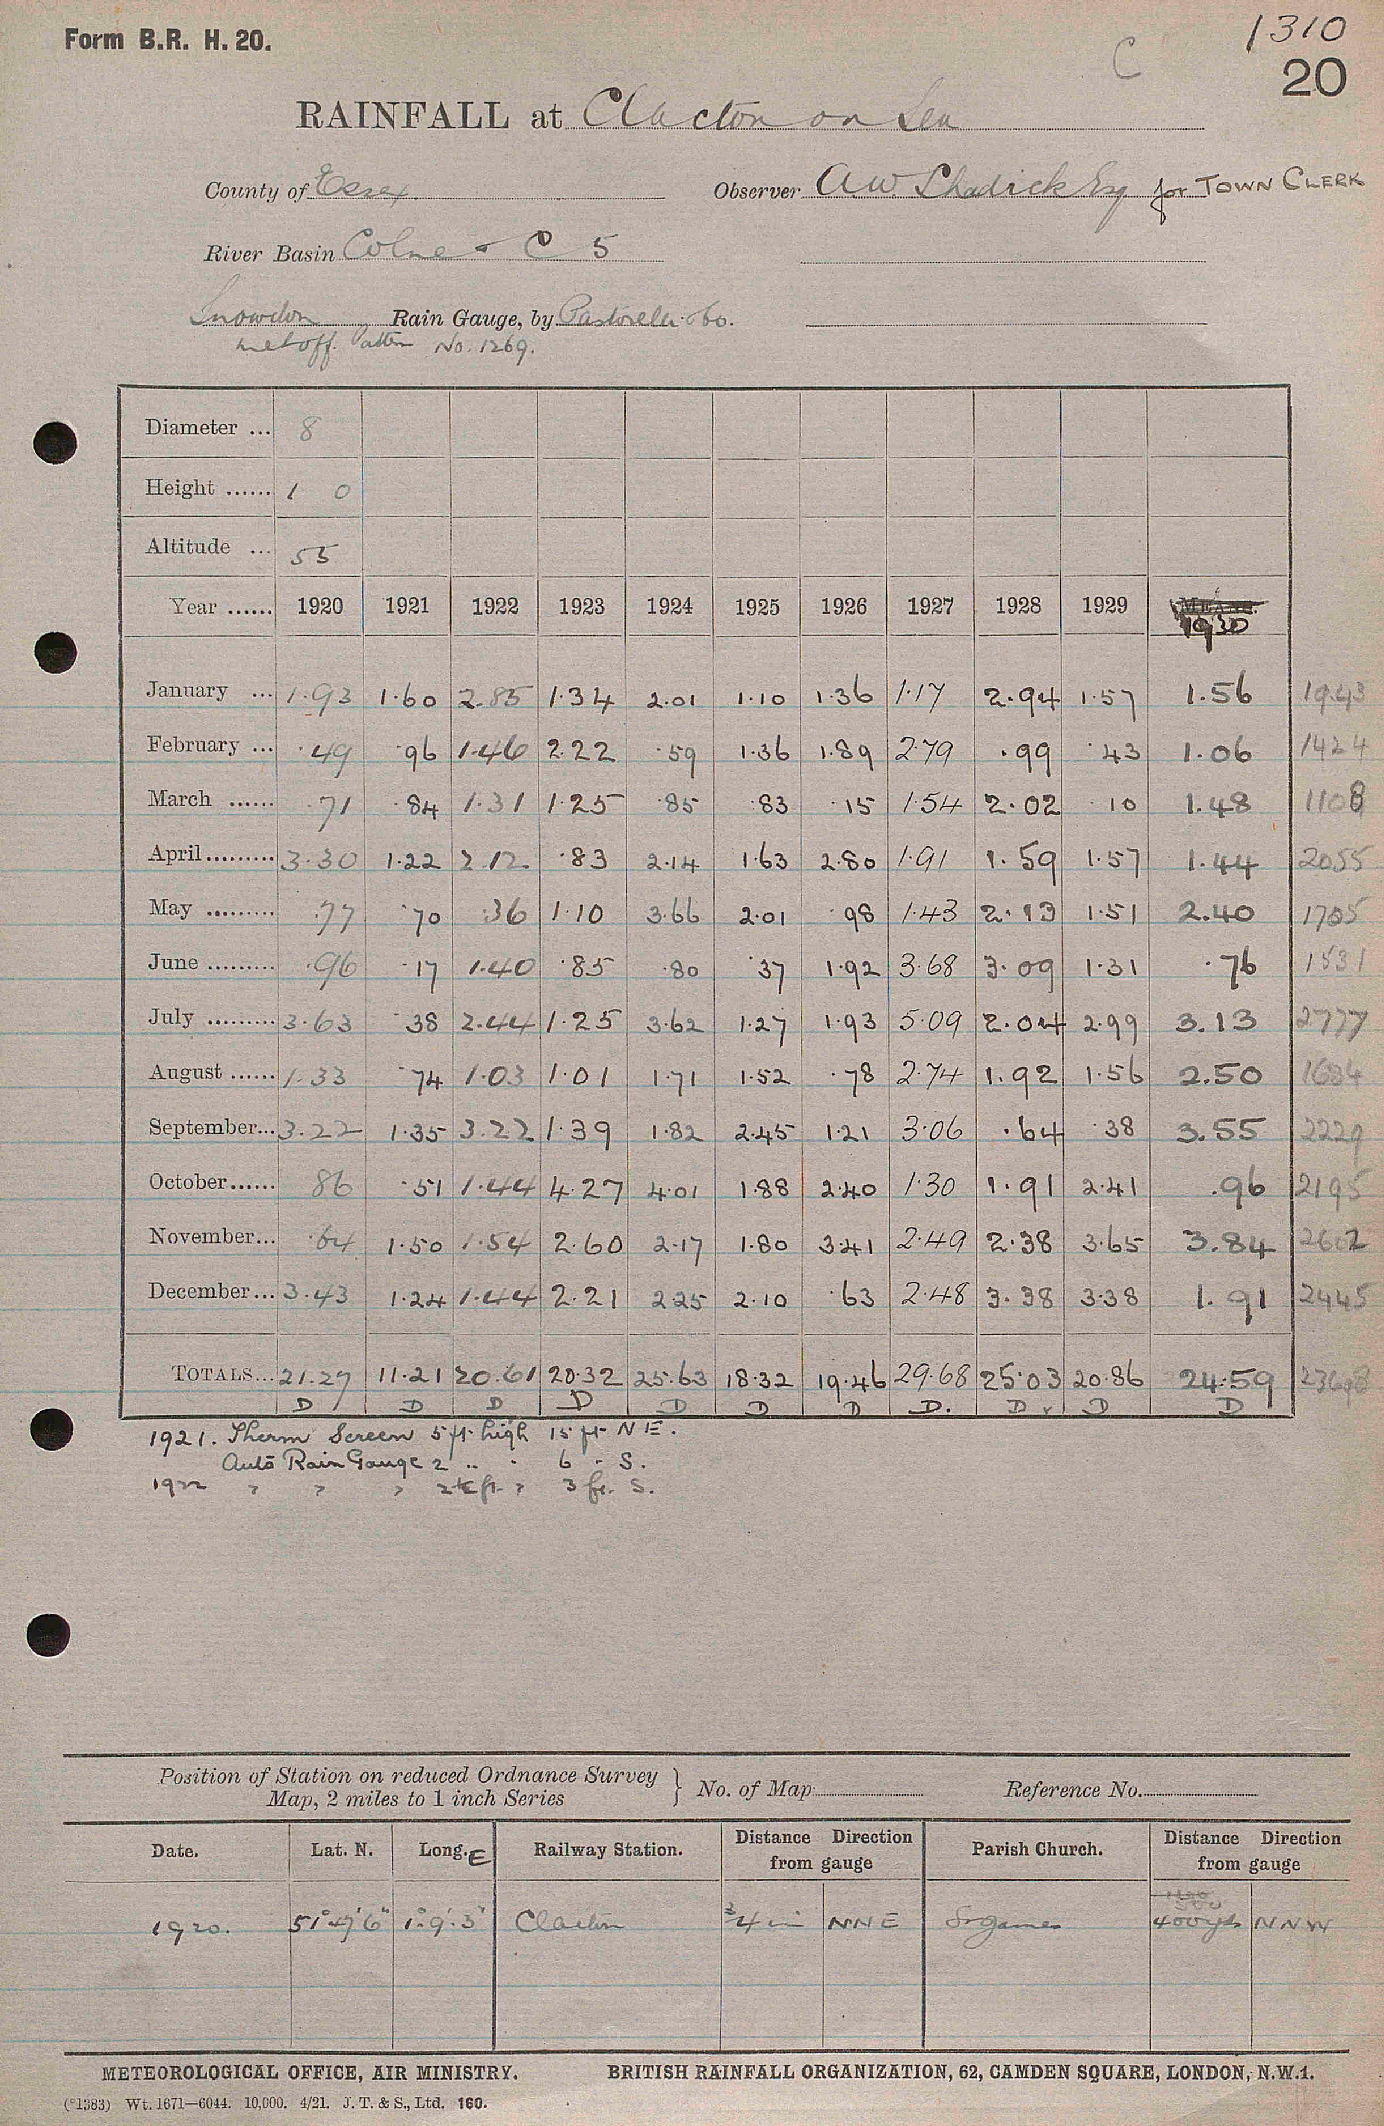 Form B.R. H. 20.
1310
C
20
RAINFALL at Clacton on Sea
County of Essex
Observer AW Shadick Esq for TOWN CLERK
River Basin Colne - C 5
Snowdon Rain Gauge, by Pastorelli & Co.
Met off. Pattern No. 1269.
Diameter ... 8
Height ...... 1 0
Altitude ... 55
Year ...... 1920 1921 1922 1923 1924 1925 1926 1927 1928 1929 MEANS. 1930
January ... 1.93 1.60 2.85 1.34 2.01 1.10 1.36 1.17 2.94 1.57 1.56 1943
February ... .49 .96 1.46 2.22 .59 1.36 1.89 2.79 .99 .43 1.06 1424
March ...... .71 .84 1.31 1.25 .85 .83 .15 1.54 2.02 .10 1.48 1108
April......... 3.30 1.22 2.12 .83 2.14 1.63 2.80 1.91 1.59 1.57 1.44 2055
May ......... .77 .70 .36 1.10 3.66 2.01 .98 1.43 2.13 1.51 2.40 1705
June ......... .96 .17 1.40 .85 .80 .37 1.92 3.68 3.09 1.31 .76 1531
July ......... 3.63 .38 2.44 1.25 3.62 1.27 1.93 5.09 2.04 2.99 3.13 2777
August ...... 1.33 .74 1.03 1.01 1.71 1.52 .78 2.74 1.92 1.56 2.50 1684
September... 3.22 1.35 3.22 1.39 1.82 2.45 1.21 3.06 .64 .38 3.55 2229
October...... .86 .51 1.44 4.27 4.01 1.88 2.40 1.30 1.91 2.41 .96 2195
November... .64 1.50 1.54 2.60 2.17 1.80 3.41 2.49 2.38 3.65 3.84 2602
December... 3.43 1.24 1.44 2.21 2.25 2.10 .63 2.48 3.38 3.38 1.91 2445
TOTALS... 21.27 11.21 20.61 20.32 25.63 18.32 19.46 29.68 25.03 20.86 24.59 23698
D D D D D D D D. D D D
1921. Therm Screen 5 ft high 15 ft N E.
Auto Rain Gauge 2 " " 6 " S.
1922 " " " 2½ ft. " 3 ft. S.
Position of Station on reduced Ordnance Survey Map, 2 miles to 1 inch Series } No. of Map Reference No.
Date. Lat. N. Long. E Railway Station. Distance Direction from gauge Parish Church. Distance Direction from gauge
1920. 51° 47' 6" 1° 9' 3" Clacton ¾ m NNE St James 400 yds NNW
METEOROLOGICAL OFFICE, AIR MINISTRY. BRITISH RAINFALL ORGANIZATION, 62, CAMDEN SQUARE, LONDON, N.W.1.
(*1383) Wt. 1671—6044. 10,000. 4/21. J. T. & S., Ltd. 160.